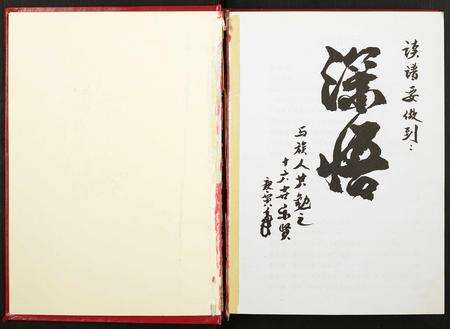 读谱要做到:
深悟
与族人共勉之
十六世 乐贤
庚寅年